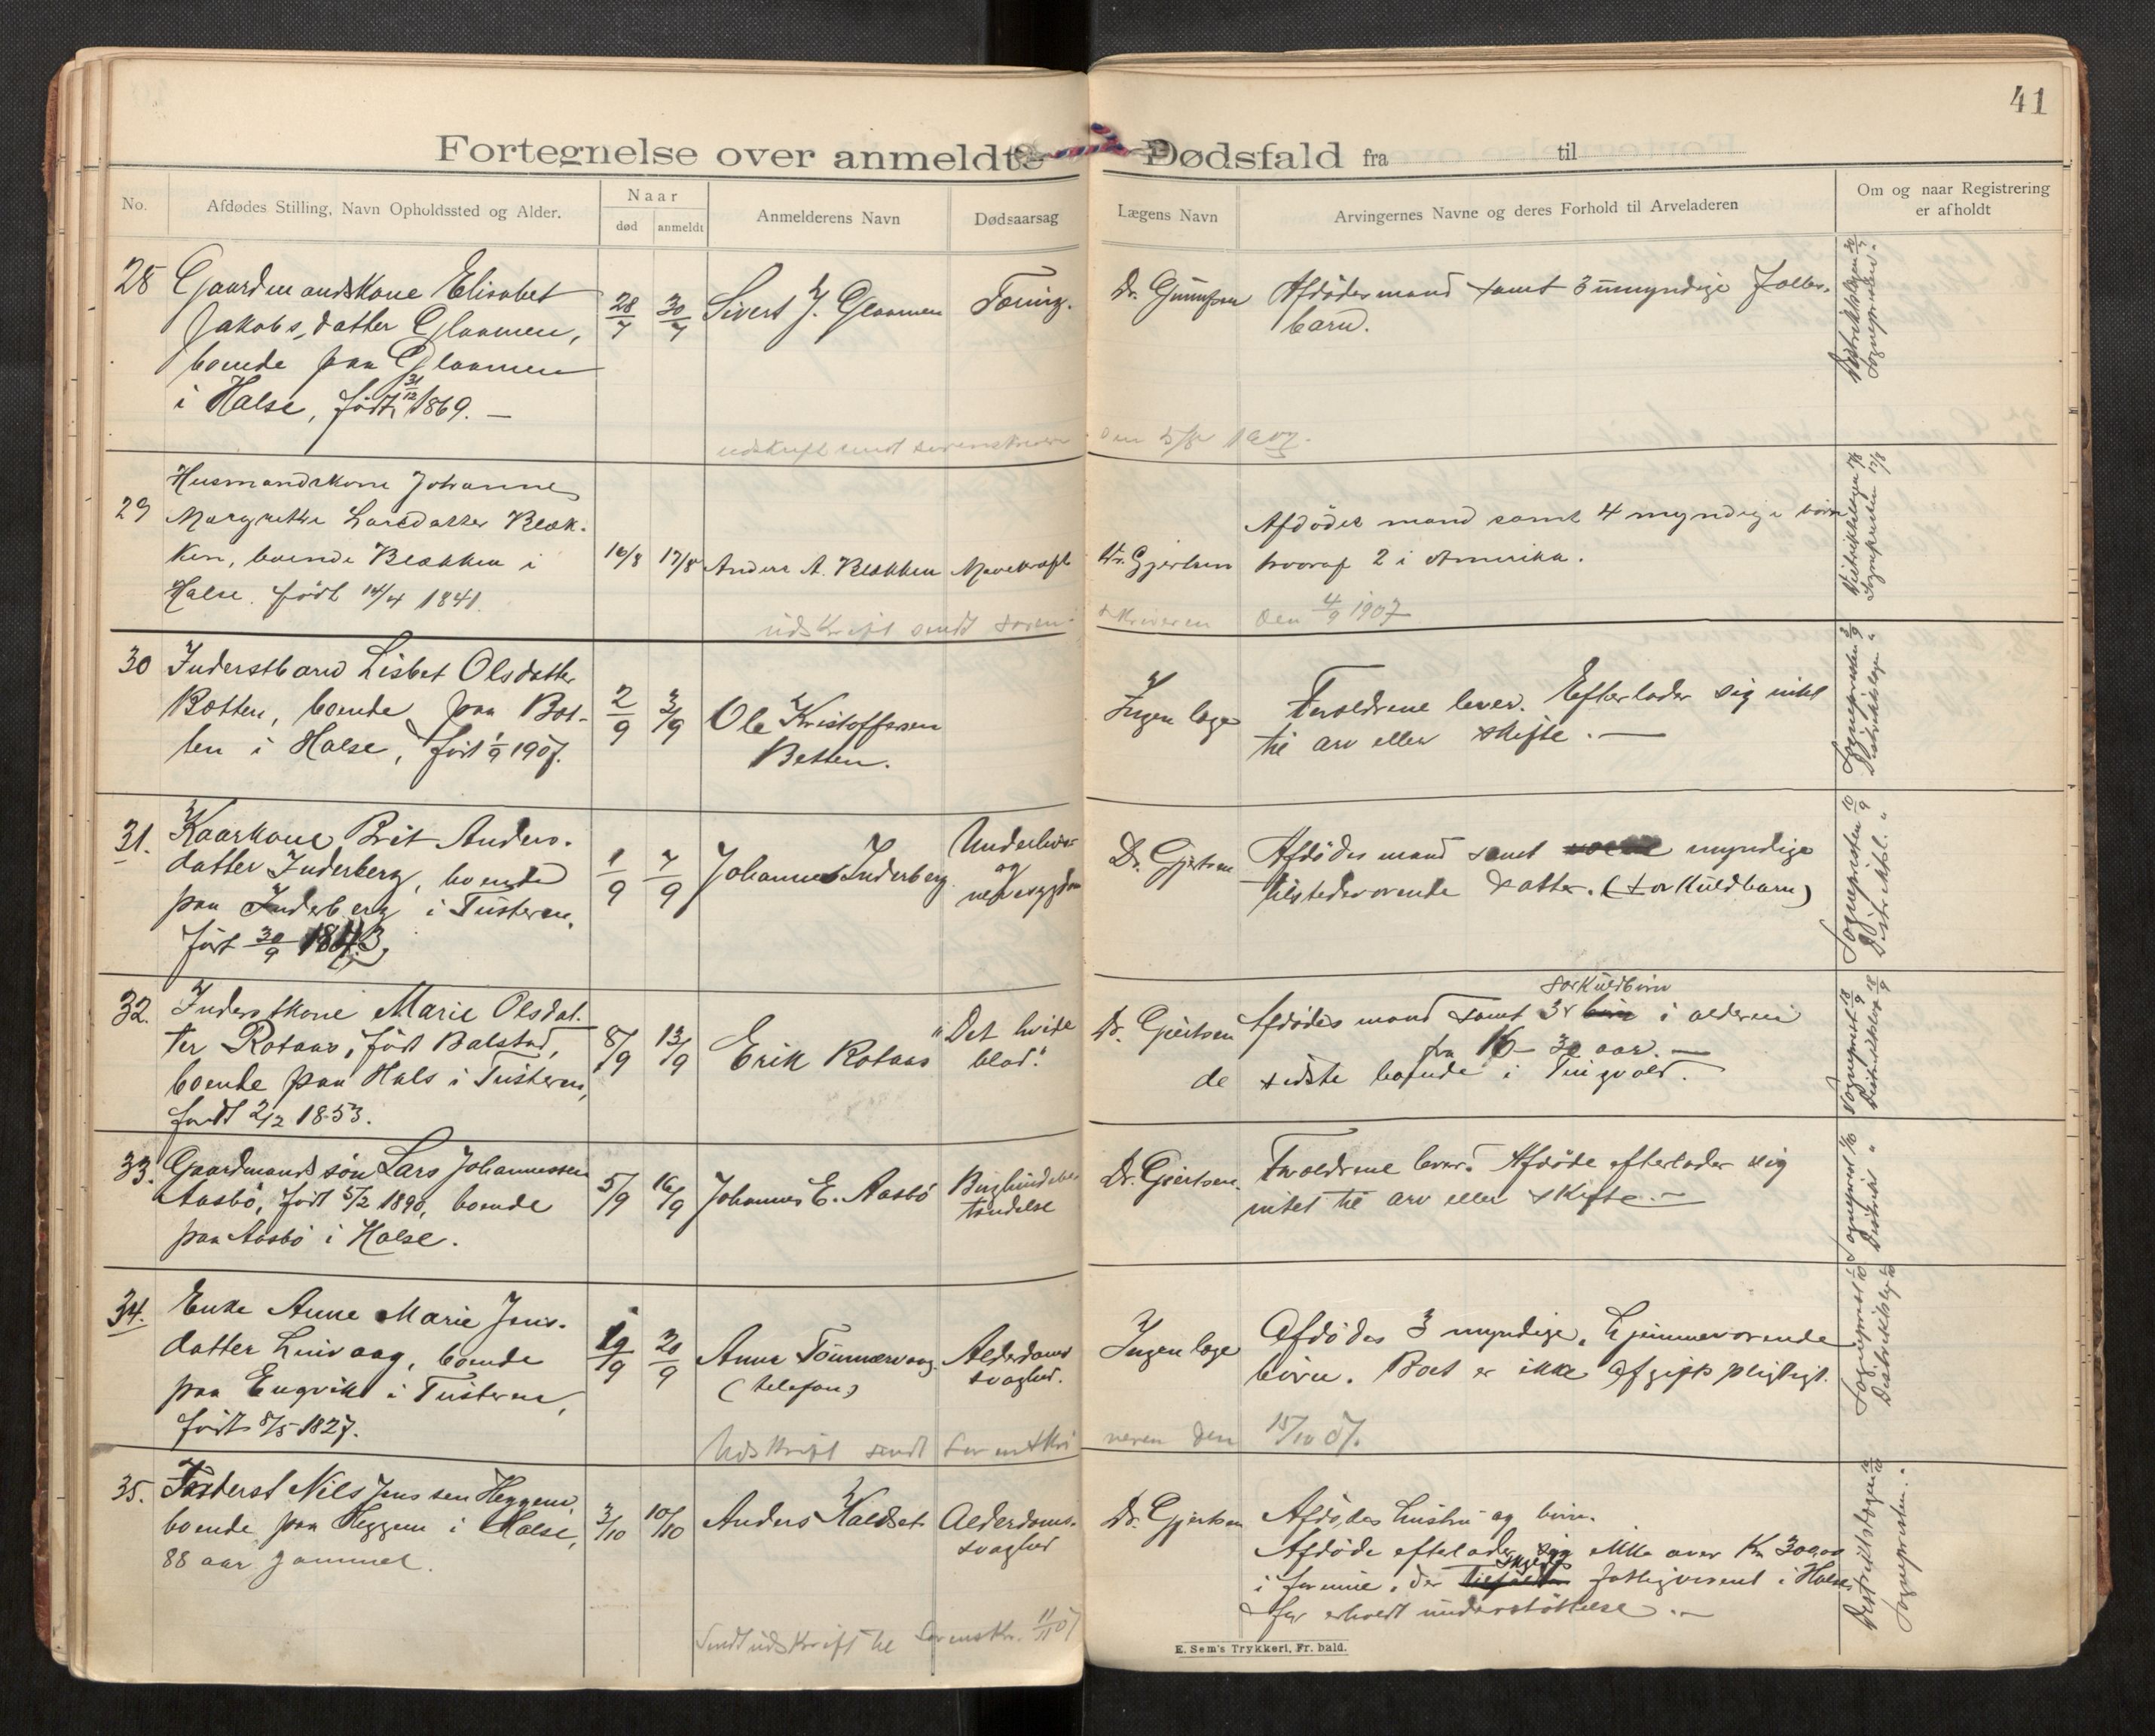 41
Fortegnelse over anmeldte Dødsfald fra til
No.
Afdødes Stilling, Navn Opholdssted og Alder.
Naar
død
anmeldt
Anmelderens Navn
Dødsaarsag
Lægens Navn
Arvingernes Navne og deres Forhold til Arveladeren
Om og naar Registrering
er afholdt
28
Gaardmandskone Elisabet
Jakobsdatter Glaamen,
boende paa Glaamen
i Halse, født 31/12 1869. —
28/7
30/7
Sivert J. Glaamen
Tæring.
Afdødes mand samt 3 umyndige Fælles-
barn.
Distriktslægen
Sognepresten
udskrift sendt sorenskriveren
den 5/8 1907.
29
Husmandskone Johanne
Margrethe Larsdatter Blæk-
ken, boende Blækken i
Halse. født 14/4 1841.
16/8
17/8
Anders A. Blækken
Mavekræft
Dr. Gjertsen
Afdødes mand samt 4 myndige børn
hvoraf 2 i Amerika.
Distriktslægen 17/8
Sognepresten 17/8
udskrift sendt soren-
skriveren den 4/9 1907
30
Inderstbarn Lisbet Olsdatter
Bøtten, boende paa Bøt-
ten i Halse, født 1/9 1907.
2/9
3/9
Ole Kristoffersen
Betten.
Ingen læge
Foreldrene lever. Efterlader sig intet
til arv eller skifte. —
Sognepresten 3/9
Distriktslægen "
31.
Kaarkone Brit Anders-
datter Inderberg, boende
paa Inderberg i Tusteren.
født 30/9 1843.
1/9
7/9
Johannes Inderberg.
Underlivs-
og
nyresygdom
Dr. Gjertsen
Afdødes mand samt myndige
tilstedeværende datter. (særkuldbarn)
Sognepresten 10/9
Distriktsl. "
32.
Inderstkone Marie Olsdat-
ter Rotaas, født Balstad,
boende paa Hals i Tusteren,
født 2/2 1853.
8/9
13/9
Erik Rotaas
"Det hvide
blod."
Dr. Gjertsen
særkuldbørn
Afdødes mand samt 3 i alderen
fra 16 – 30 aar. —
de sidste boende i Tingvold.
Sogneprest 18/9
Distriktslæge 18/9
33.
Gaardmandssøn Lars Johannessen
Aasbø, født 5/2 1890, boende
paa Aasbø i Halse.
5/9
16/9
Johannes E. Aasbø
Bughindebe-
tændelse
Dr. Gjertsen.
Foreldrene lever. Afdøde efterlader sig
intet til arv eller skifte. —
Sogneprest 1/10
Distrikts "
34.
Enke Anne Marie Jens-
datter Leirvaag, boende
paa Engvik i Tusteren,
født 8/5 1827.
19/9
20/9
Anna Tømmervaag.
(telefon)
Alderdoms-
svaghed.
Ingen læge
Afdødes 3 myndige, hjemmeværende
børn. Boet er ikke afgiftspligtigt.
Sogneprest 1/10
Distriktslæge 1/10
Udskrift sendt Sorenskri-
veren den 15/10 07.
35.
Inderst Nils Jenssen Heggem,
boende paa Heggem i Halse,
88 aar gammel.
3/10
10/10
Anders Kaldset
Alderdoms-
svaghed
Dr. Gjertsen
Afdødes hustru og børn.
Afdøde efterlader sig ikke over Kr 300,00
i formue, der fattigvæsenet i Halse
har erholdt understøttelse. —
Distriktslægen
Sognepresten. "
Sendt udskrift til Sorenskr. 11/11 07
E. Sem's Trykkeri, Fr. hald.